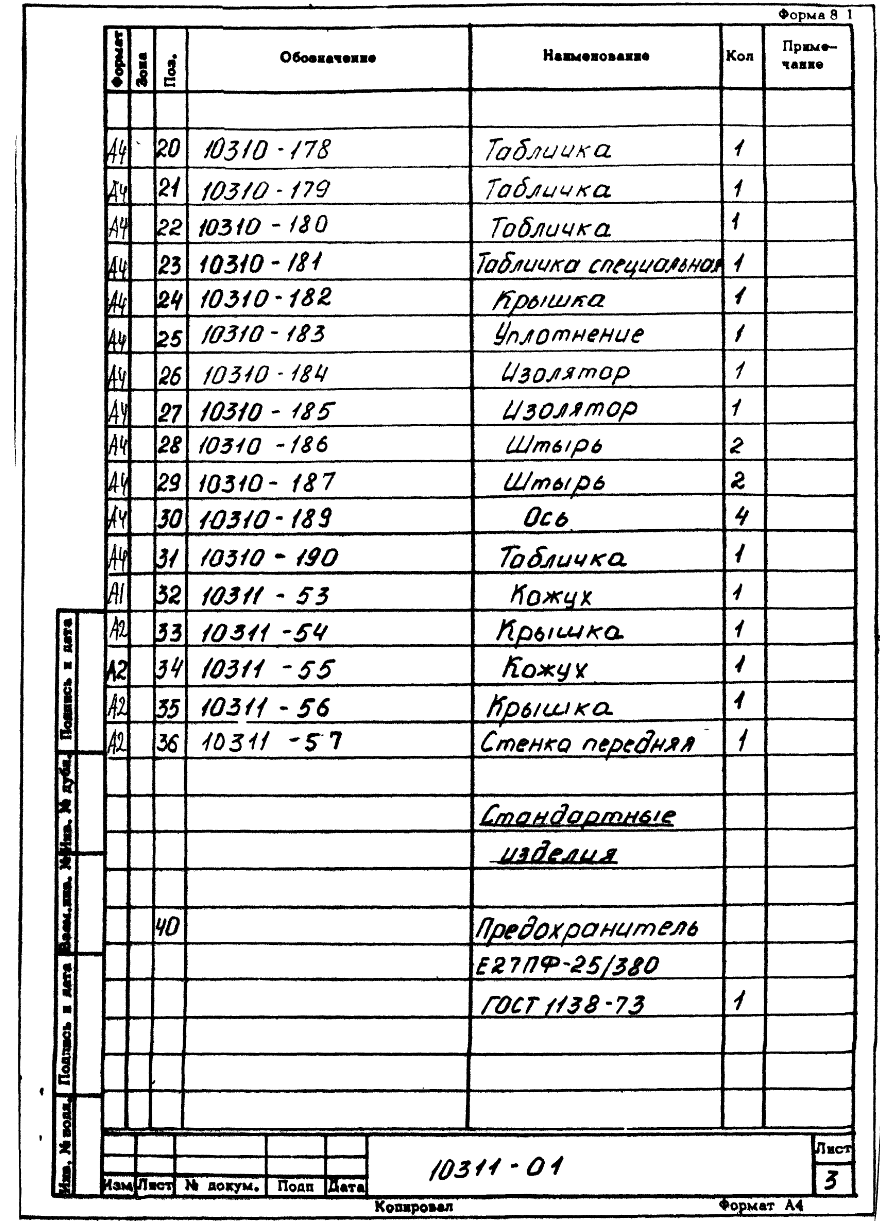 Форма 8 1
Формат Зона Поз. Обозначение Наименование Кол Приме-
чание
А4 20 10310-178 Табличка 1
А4 21 10310-179 Табличка 1
А4 22 10310-180 Табличка 1
А4 23 10310-181 Табличка специальная 1
А4 24 10310-182 Крышка 1
А4 25 10310-183 Уплотнение 1
А4 26 10310-184 Изолятор 1
А4 27 10310-185 Изолятор 1
А4 28 10310-186 Штырь 2
А4 29 10310-187 Штырь 2
А4 30 10310-189 Ось 4
А4 31 10310-190 Табличка 1
А1 32 10311-53 Кожух 1
А2 33 10311-54 Крышка 1
А2 34 10311-55 Кожух 1
А2 35 10311-56 Крышка 1
А2 36 10311-57 Стенка передняя 1
Стандартные
изделия
40 Предохранитель
Е27ПФ-25/380
ГОСТ 1138-73 1
Подпись и дата
Инв. № дубл.
Взам. инв. №
Подпись и дата
Инв. № подл.
Изм Лист № докум. Подп Дата
10311-01
Лист
3
Копировал Формат А4